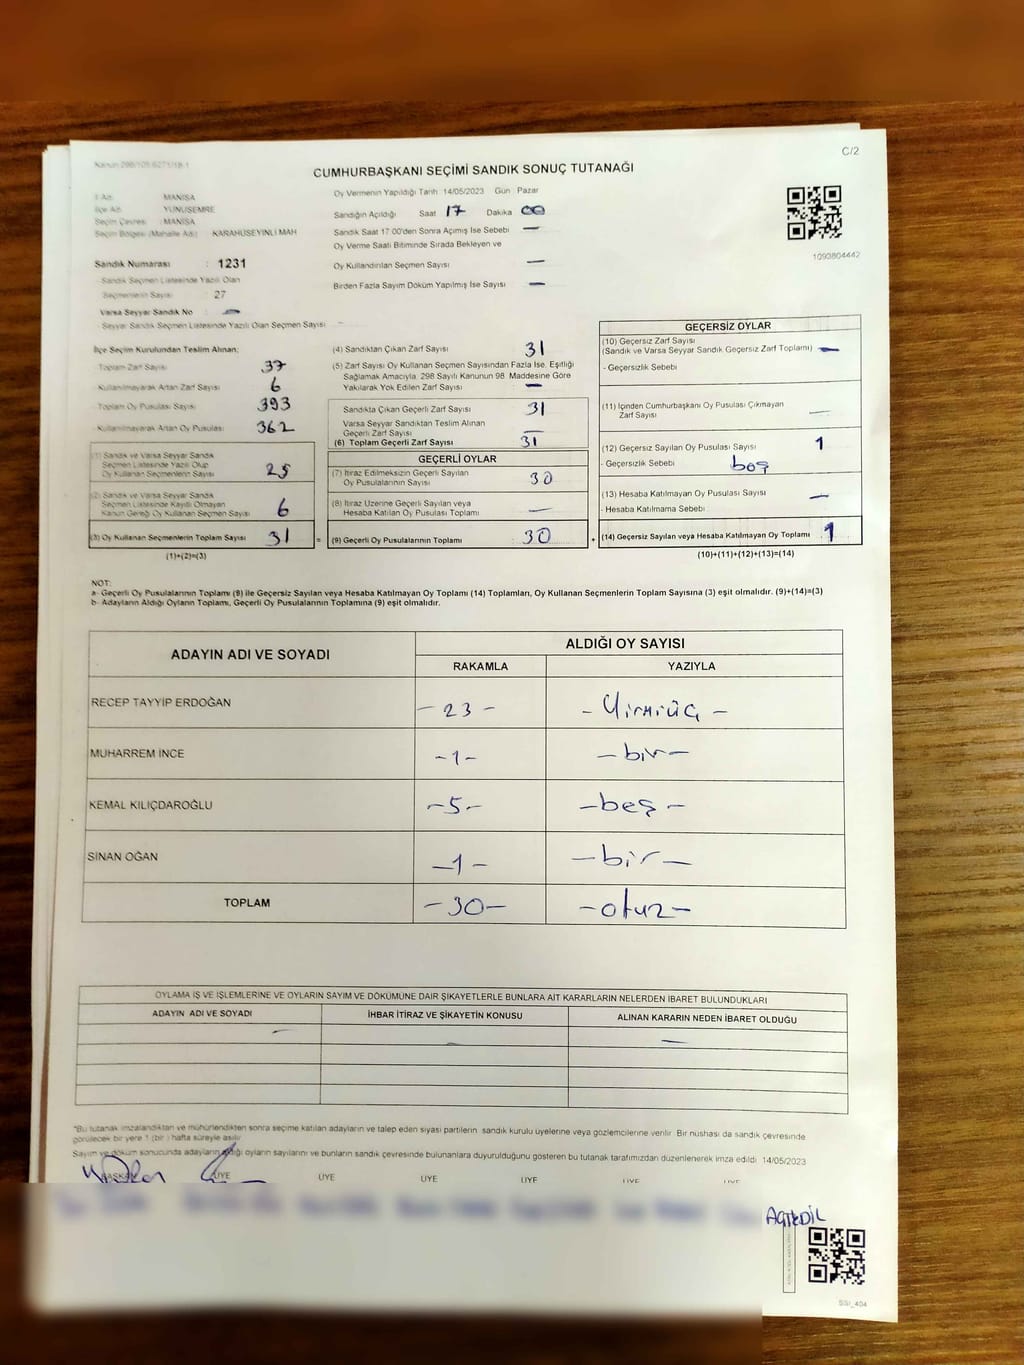 Kanun 298/105 6271/18-1
C/2
CUMHURBAŞKANI SEÇİMİ SANDIK SONUÇ TUTANAĞI
İl Adı : MANİSA
İlçe Adı : YUNUSEMRE
Seçim Çevresi : MANİSA
Seçim Bölgesi (Mahalle Adı) : KARAHÜSEYİNLİ MAH
Sandık Numarası : 1231
Sandık Seçmen Listesinde Yazılı Olan
Seçmenlerin Sayısı : 27
Varsa Seyyar Sandık No : —
- Seyyar Sandık Seçmen Listesinde Yazılı Olan Seçmen Sayısı —
Oy Vermenin Yapıldığı Tarih 14/05/2023 Gün : Pazar
Sandığın Açıldığı Saat 17 Dakika 00
Sandık Saat 17:00'den Sonra Açımış İse Sebebi —
Oy Verme Saati Bitiminde Sırada Bekleyen ve
Oy Kullandırılan Seçmen Sayısı —
Birden Fazla Sayım Döküm Yapılmış İse Sayısı —
1093804442
İlçe Seçim Kurulundan Teslim Alınan;
Toplam Zarf Sayısı 37
Kullanılmayarak Artan Zarf Sayısı 6
Toplam Oy Pusulası Sayısı 393
Kullanılmayarak Artan Oy Pusulası 362
(1) Sandık ve Varsa Seyyar Sandık
Seçmen Listesinde Yazılı Olup
Oy Kullanan Seçmenlerin Sayısı 25
(2) Sandık ve Varsa Seyyar Sandık
Seçmen Listesinde Kayıtlı Olmayan
Kanun Gereği Oy Kullanan Seçmen Sayısı 6
(3) Oy Kullanan Seçmenlerin Toplam Sayısı 31 =
(1)+(2)=(3)
(4) Sandıktan Çıkan Zarf Sayısı 31
(5) Zarf Sayısı Oy Kullanan Seçmen Sayısından Fazla İse, Eşitliği
Sağlamak Amacıyla 298 Sayılı Kanunun 98. Maddesine Göre
Yakılarak Yok Edilen Zarf Sayısı —
Sandıkta Çıkan Geçerli Zarf Sayısı 31
Varsa Seyyar Sandıktan Teslim Alınan
Geçerli Zarf Sayısı —
(6) Toplam Geçerli Zarf Sayısı 31
GEÇERLİ OYLAR
(7) İtiraz Edilmeksizin Geçerli Sayılan
Oy Pusulalarının Sayısı 30
(8) İtiraz Üzerine Geçerli Sayılan veya
Hesaba Katılan Oy Pusulası Toplamı —
(9) Geçerli Oy Pusulalarının Toplamı : 30 +
GEÇERSİZ OYLAR
(10) Geçersiz Zarf Sayısı
(Sandık ve Varsa Seyyar Sandık Geçersiz Zarf Toplamı) —
- Geçersizlik Sebebi
(11) İçinden Cumhurbaşkanı Oy Pusulası Çıkmayan
Zarf Sayısı —
(12) Geçersiz Sayılan Oy Pusulası Sayısı 1
- Geçersizlik Sebebi boş
(13) Hesaba Katılmayan Oy Pusulası Sayısı —
- Hesaba Katılmama Sebebi
(14) Geçersiz Sayılan veya Hesaba Katılmayan Oy Toplamı 1
(10)+(11)+(12)+(13)=(14)
NOT:
a- Geçerli Oy Pusulalarının Toplamı (9) ile Geçersiz Sayılan veya Hesaba Katılmayan Oy Toplamı (14) Toplamları, Oy Kullanan Seçmenlerin Toplam Sayısına (3) eşit olmalıdır. (9)+(14)=(3)
b- Adayların Aldığı Oyların Toplamı, Geçerli Oy Pusulalarının Toplamına (9) eşit olmalıdır.
ADAYIN ADI VE SOYADI ALDIĞI OY SAYISI
RAKAMLA YAZIYLA
RECEP TAYYİP ERDOĞAN -23- -Yirmiüç-
MUHARREM İNCE -1- -bir-
KEMAL KILIÇDAROĞLU -5- -beş-
SİNAN OĞAN -1- -bir-
TOPLAM -30- -otuz-
OYLAMA İŞ VE İŞLEMLERİNE VE OYLARIN SAYIM VE DÖKÜMÜNE DAİR ŞİKAYETLERLE BUNLARA AİT KARARLARIN NELERDEN İBARET BULUNDUKLARI
ADAYIN ADI VE SOYADI İHBAR İTİRAZ VE ŞİKAYETİN KONUSU ALINAN KARARIN NEDEN İBARET OLDUĞU
— — —
"Bu tutanak imzalandıktan ve mühürlendikten sonra seçime katılan adayların ve talep eden siyasi partilerin sandık kurulu üyelerine veya gözlemcilerine verilir. Bir nüshası da sandık çevresinde
görülecek bir yere 1 (bir) hafta süreyle asılır.
Sayım ve döküm sonucunda adayların aldığı oyların sayılarını ve bunların sandık çevresinde bulunanlara duyurulduğunu gösteren bu tutanak tarafımızdan düzenlenerek imza edildi. 14/05/2023
BAŞKAN ÜYE ÜYE ÜYE ÜYE ÜYE ÜYE
SSI_404